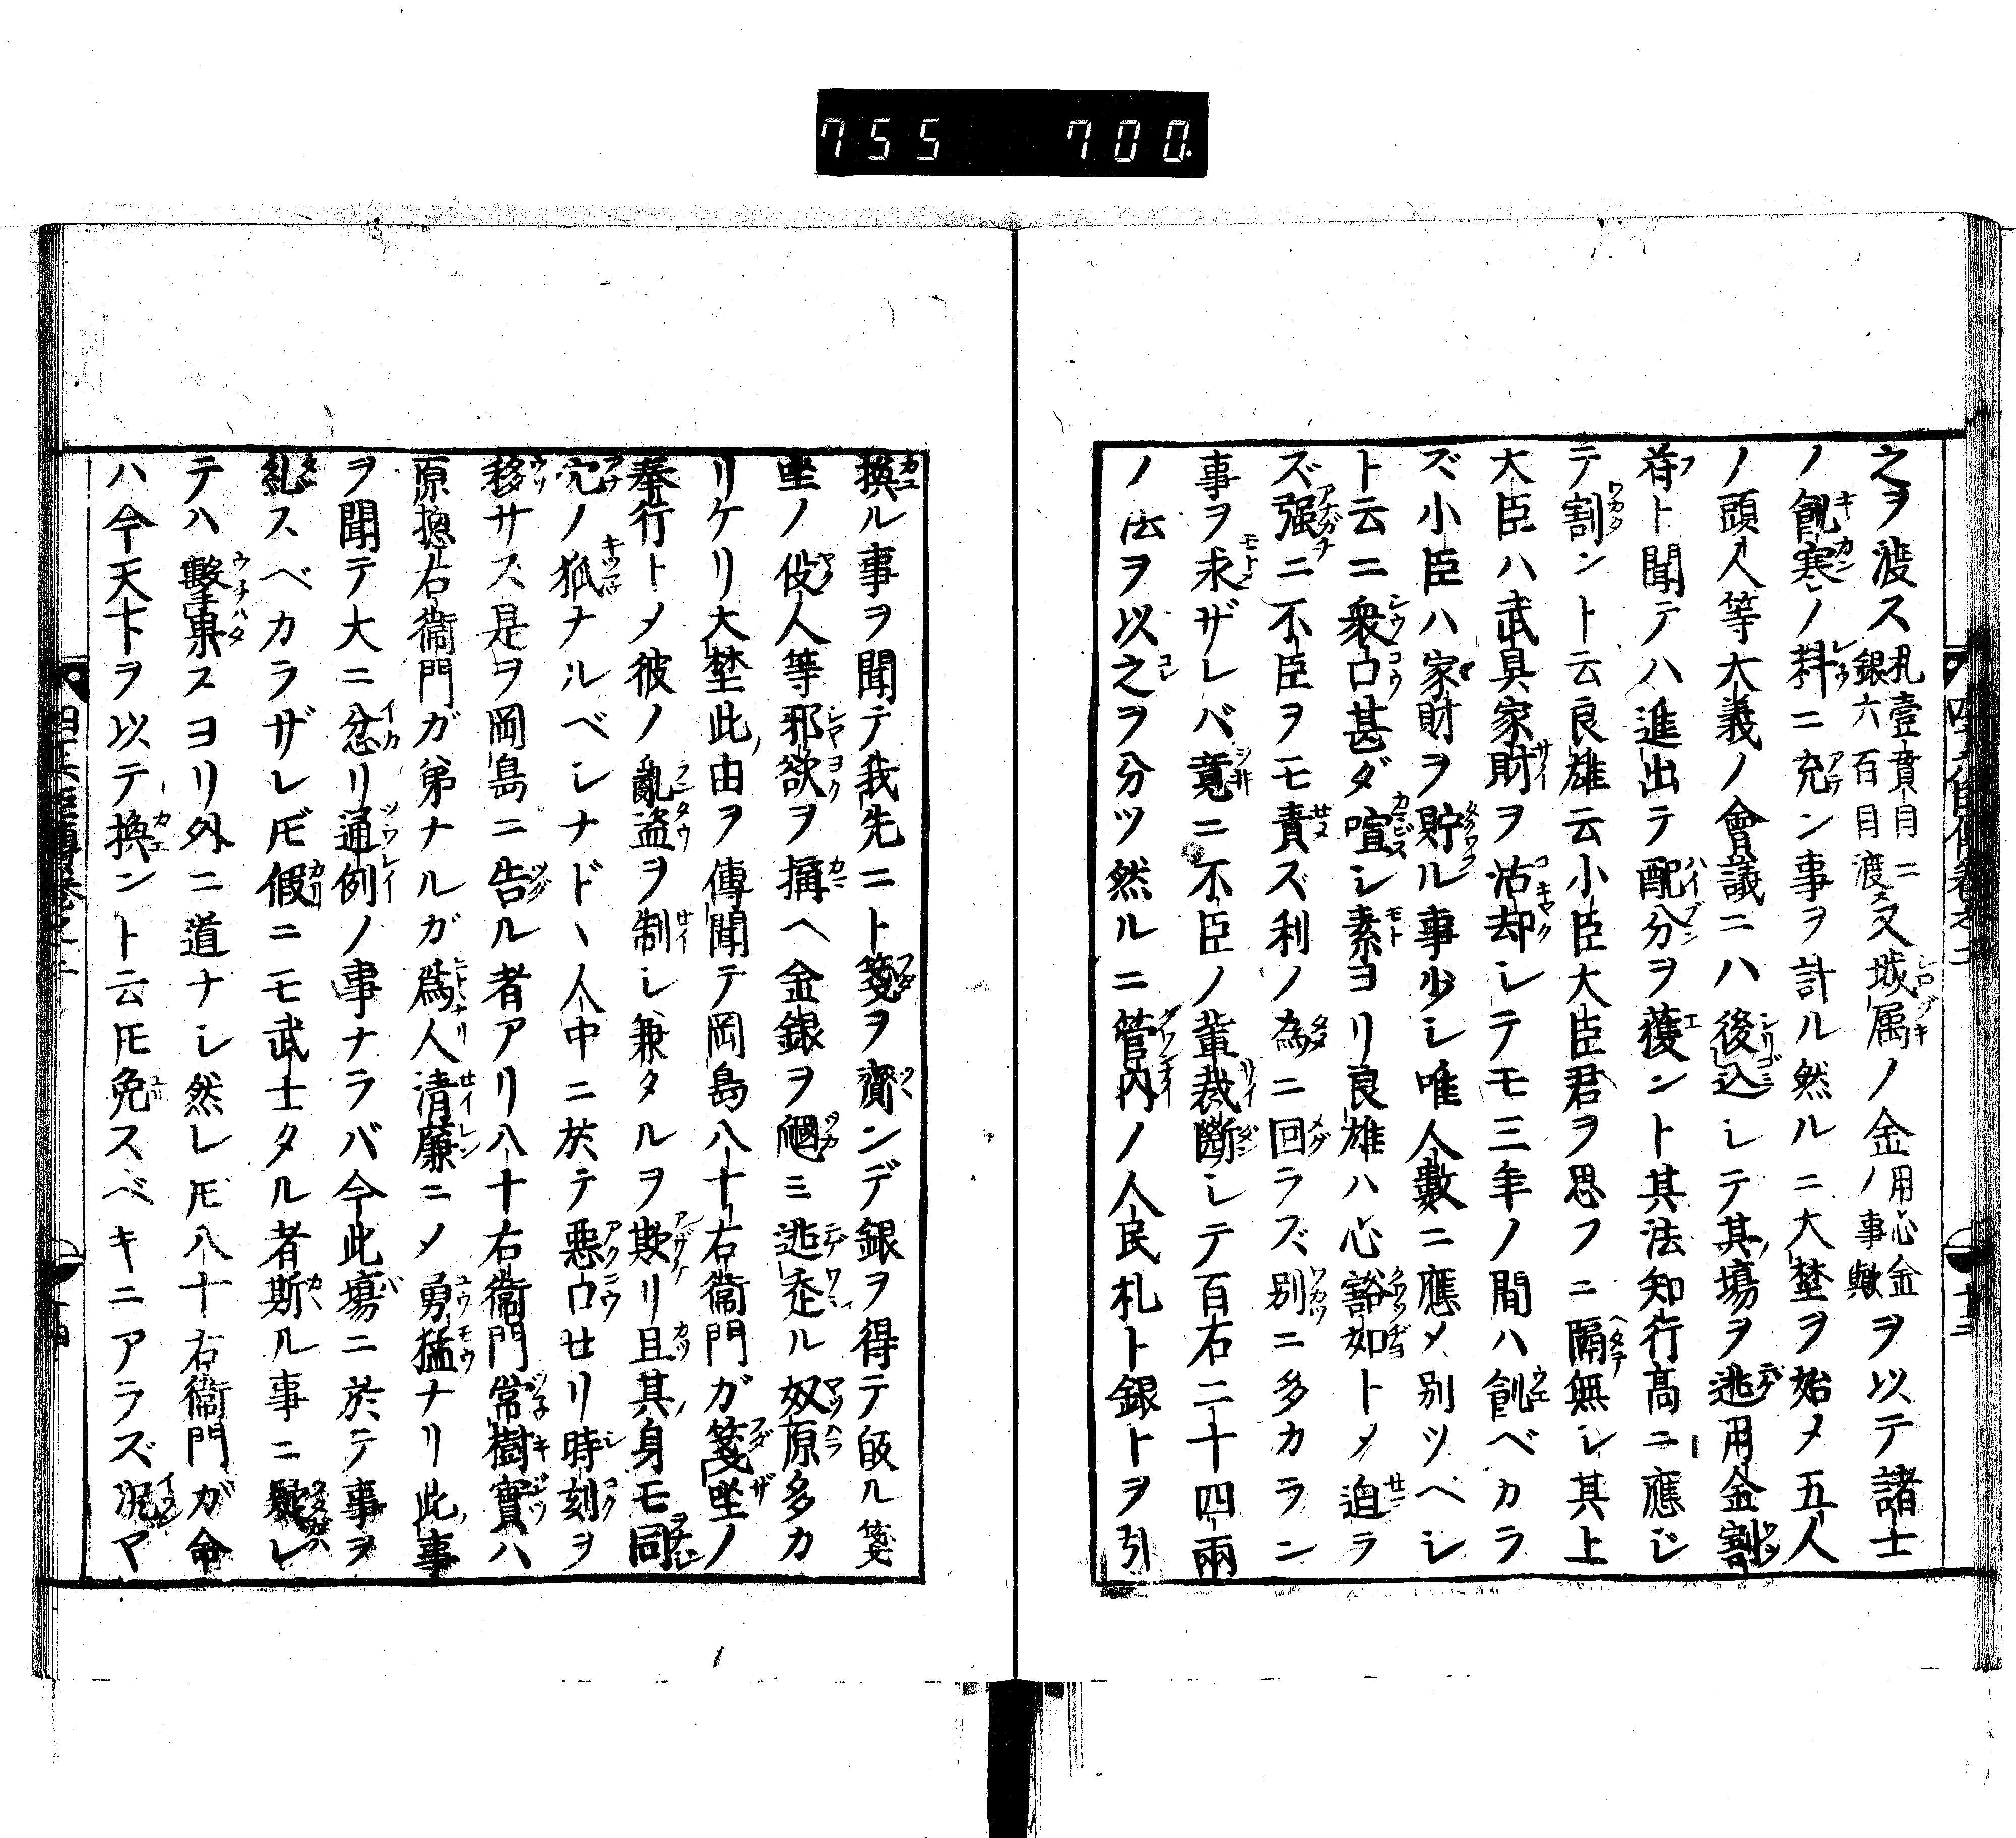 755 700.
之ヲ渡ス札壹貫目ニ銀六百目渡ス又城属ノ金用心金ノ事歟ヲ以テ諸士
ノ飢寒ノ料ニ充ン事ヲ計ル然ルニ大埜ヲ始メ五人
ノ頭人等大義ノ會議ニハ後込レテ其場ヲ逃用金割
符ト聞テハ進出テ配分ヲ獲ント其法知行髙ニ應ジ
テ割ント云良雄云小臣大臣君ヲ思フニ隔無シ其上
大臣ハ武具家財ヲ沽却レテモ三年ノ間ハ飢ベカラ
ズ小臣ハ家財ヲ貯ル事少シ唯人數ニ應メ別ツヘシ
ト云ニ衆口甚ダ喧シ素ヨリ良雄ハ心豁如トメ迫ラ
ズ强ニ不臣ヲモ責ズ利ノ為ニ回ラズ別ニ多カラン
事ヲ求ザレバ竟ニ不臣ノ輩裁斷シテ百石二十四兩
ノ法ヲ以之ヲ分ツ然ルニ管内ノ人民札ト銀トヲ引
換ル事ヲ聞テ我先ニト箋ヲ齎ンデ銀ヲ得テ皈ル箋
坐ノ役人等邪欲ヲ搆ヘ金銀ヲ逃迯ル奴原多カ
リケリ大埜此由ヲ傳聞テ岡島八十右衞門ガ箋坐ノ
奉行トメ彼ノ亂盗ヲ制シ兼タルヲ欺リ且其身モ同
穴ノ狐ナルベシナド丶人中ニ於テ悪口せリ時刻ヲ
移サズ是ヲ岡島ニ告ル者アリ八十右衞門常樹實ハ
原摠右衞門ガ弟ナルガ爲人清廉ニメ勇猛ナリ此事
ヲ聞テ大ニ忿リ通例ノ事ナラバ今此塲ニ於テ事ヲ
糺スベカラザレ𪜈假ニモ武士タル者斯ル事ニ疑レ
テハ擊果スヨリ外ニ道ナシ然レ𪜈八十右衞門ガ命
ハ今天下ヲ以テ換ント云𪜈免スベキニアラズ况ヤ